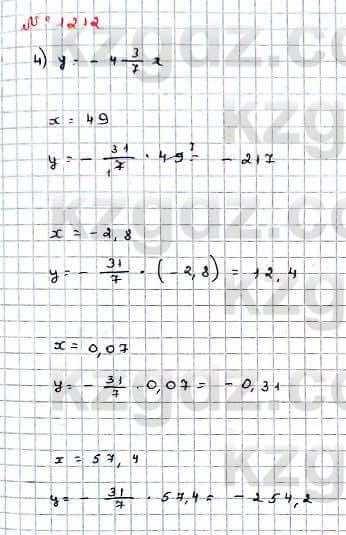 № 1212
4) y = - 4 3/7 x
x = 49
y = - 31/7 · 49 = - 217
x = -2,8
y = - 31/7 · (-2,8) = 12,4
x = 0,07
y = - 31/7 · 0,07 = - 0,31
x = 57,4
y = - 31/7 · 57,4 = - 254,2
kzgdz.com